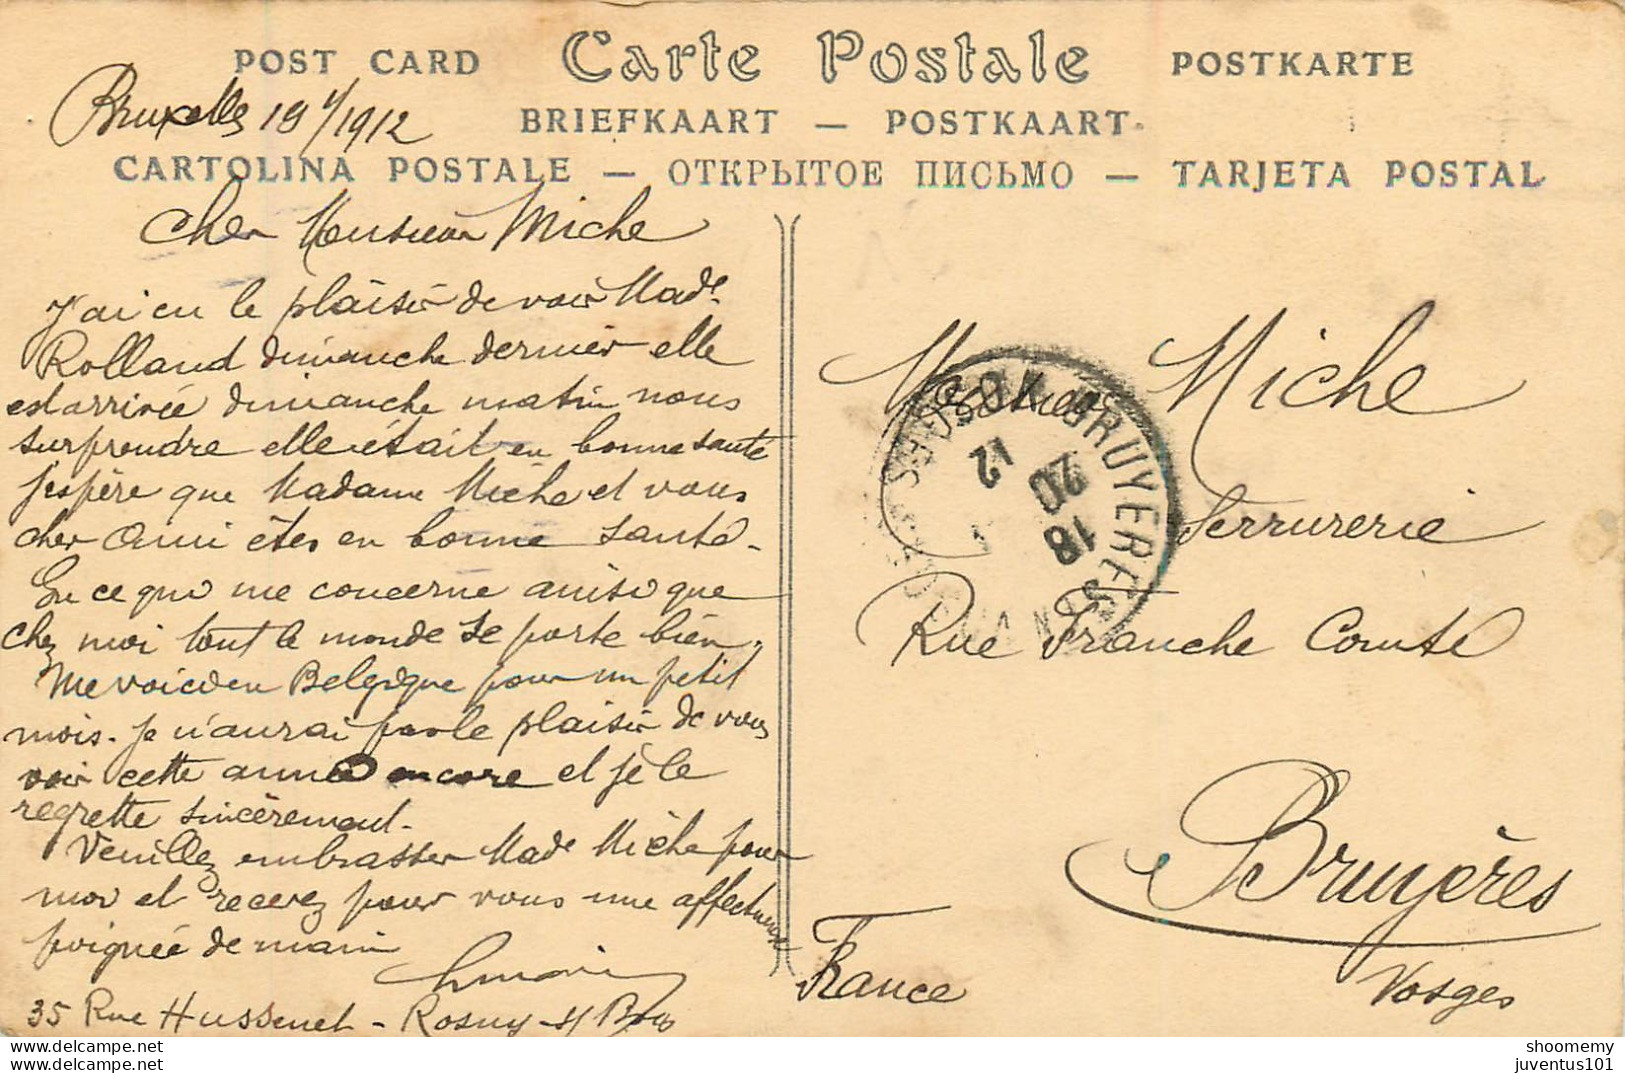 POST CARD Carte Postale POSTKARTE
Bruxelles 19/1912
BRIEFKAART — POSTKAART
CARTOLINA POSTALE — ОТКРЫТОЕ ПИСЬМО — TARJETA POSTAL
Cher Monsieur Miche
J'ai eu le plaisir de voir Made
Rolland dimanche dernier elle
est arrivée dimanche matin nous
surprendre elle était en bonne santé
J'espère que Madame Miche et vous
cher Ami êtes en bonne santé -
En ce qui me concerne ainsi que
chez moi tout le monde se porte bien,
Me voici en Belgique pour un petit
mois. Je n'aurai pas le plaisir de vous
voir cette année encore et je le
regrette sincèrement.
Veuillez embrasser Made Miche pour
moi et recevez pour vous une affectueuse
poignée de main
35 Rue Hussenet - Rosny s/ Bois
Monsieur Miche
Serrurerie
Rue Franche Comté
Bruyères
Vosges
France
BRUYERES
18
20
12
delcampe.net
juventus101
shoomemy
juventus101